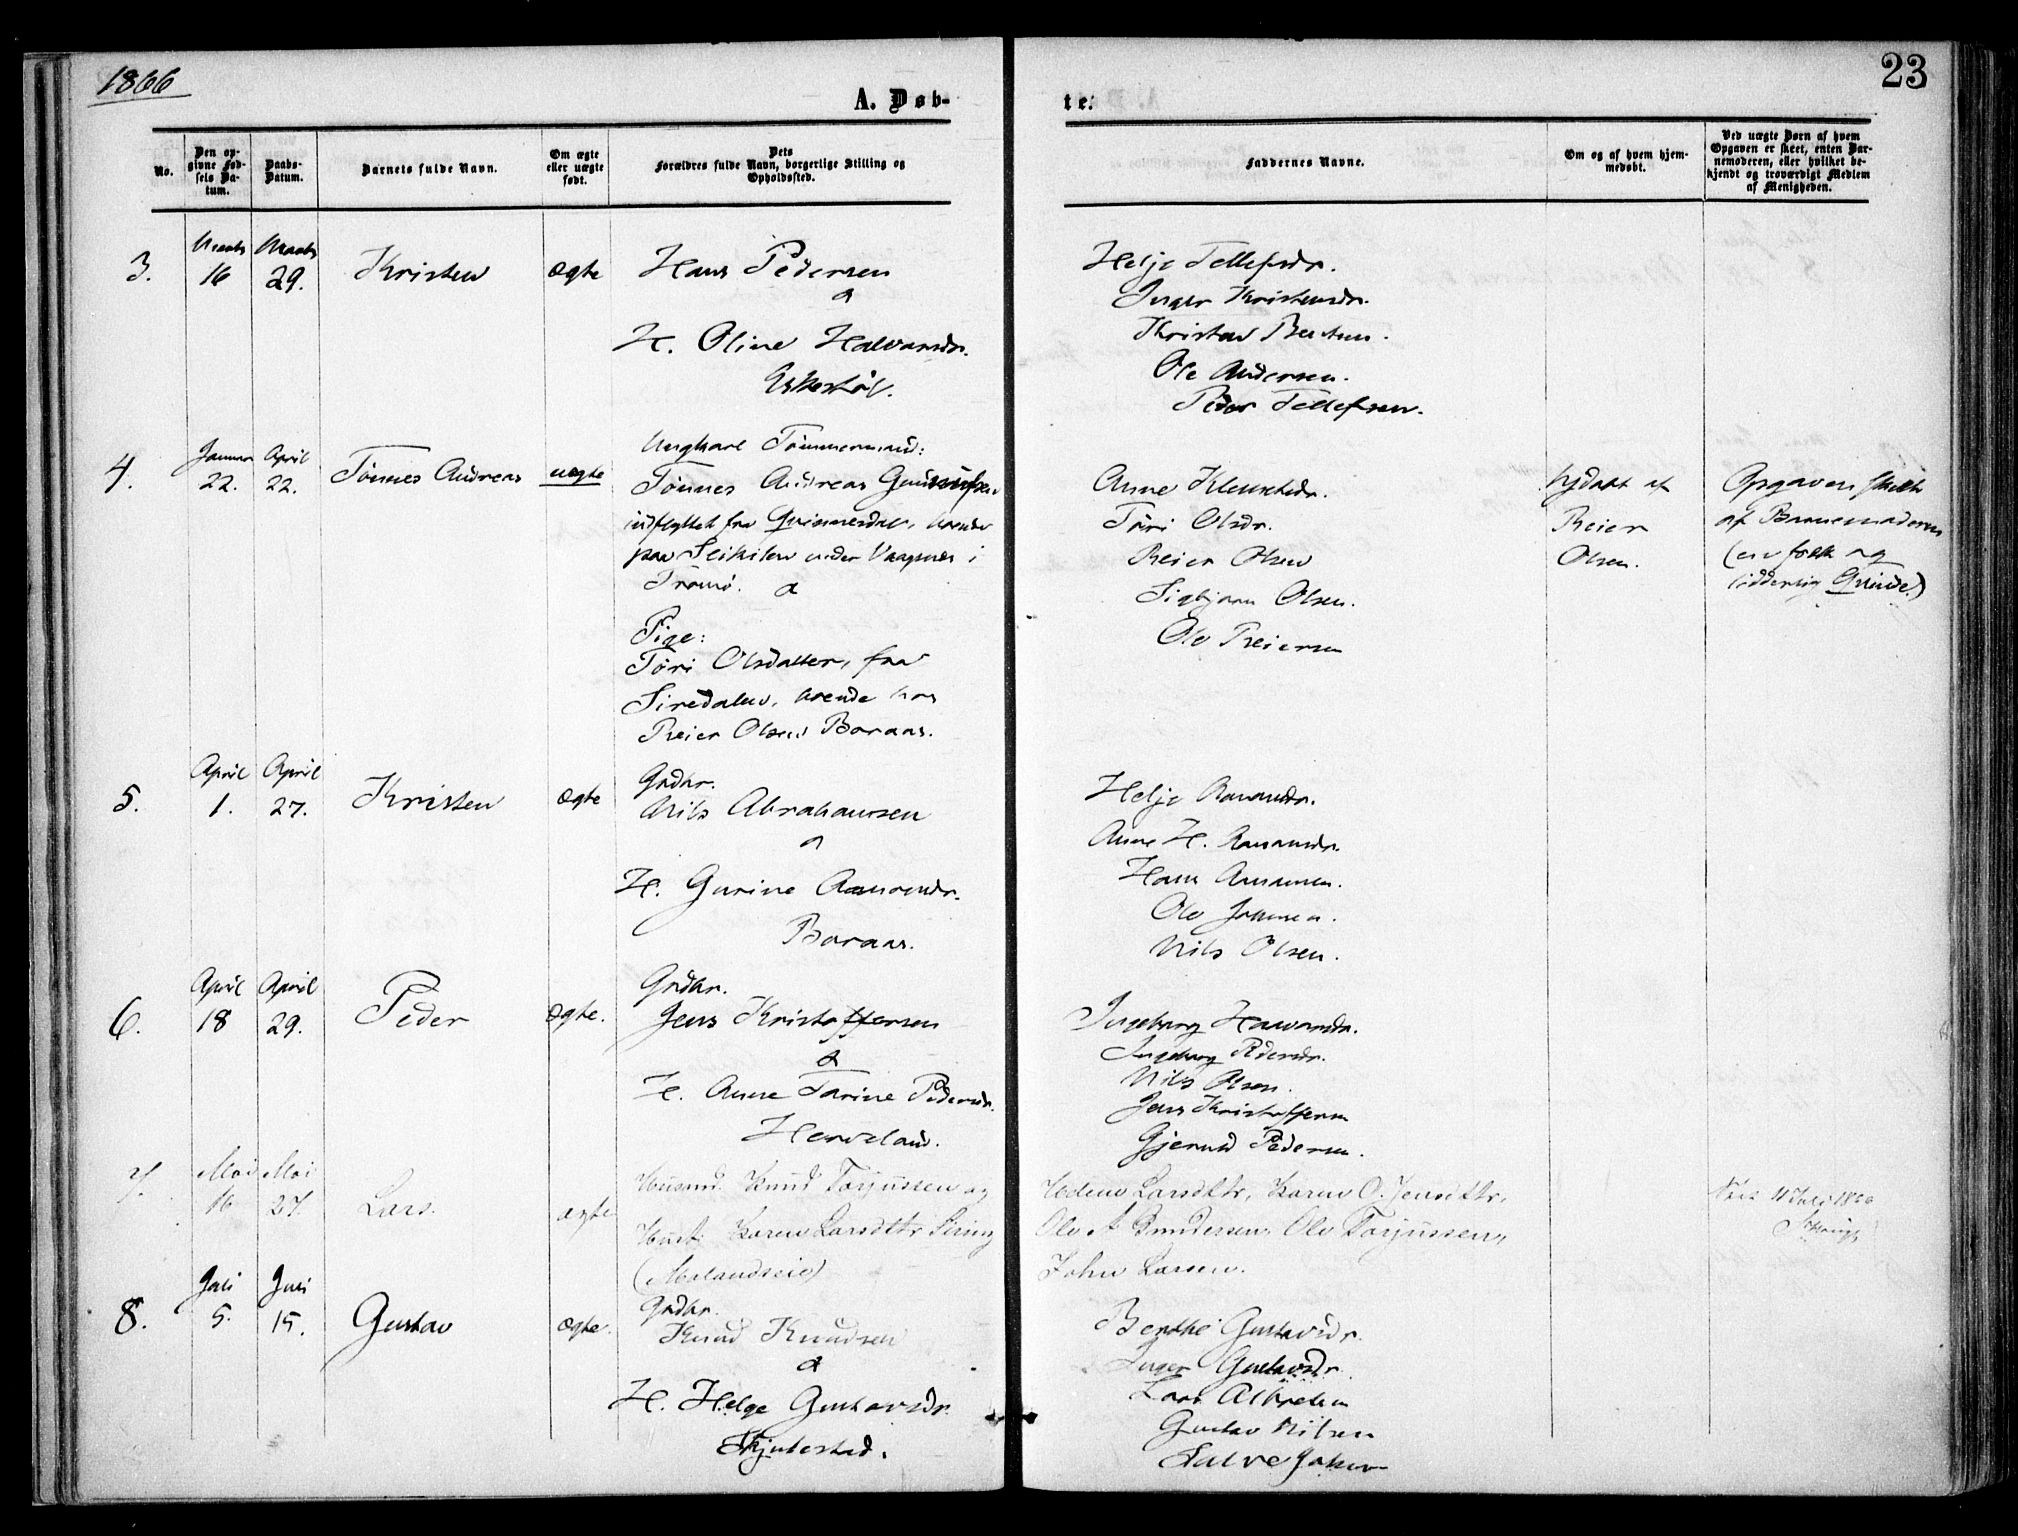 1866
23
A. Døb-
te.
No.
Den op-
givne Fød-
sels Da-
tum.
Daabs-
Datum.
Barnets fulde Navn.
Om ægte
eller uægte
født.
Dets
Forældres fulde Navn, borgerlige Stilling og
Opholdssted.
Faddernes Navne.
Om og af hvem hjem-
medøbt.
Ved uægte Børn af hvem
Opgaven er skeet, enten Bar-
nemoderen, eller hvilket be-
kjendt og troværdigt Medlem
af Menigheden.
3.
Marts
16
Marts
29.
Kristen
ægte
Hans Pedersen
&
H. Oline Halvorsdr.
Helje Tellefsdr.
Inger Kristensdr.
Kristen
Ole Andersen.
Peder Tellefsen.
4.
Januar
22.
April
22.
Tønnes Andreas
uægte
Ungkarl Tømmermand:
Tønnes Andreas
indflyttet fra Qvinnesdal, boende
paa under i
Tromø. &
Pige:
Tøri Olsdatter, fra
Siredalen, boende hos
Reier Olsen Boraas.
Anne
Tøri Olsdr.
Reier Olsen
Sigbjørn Olsen.
Ole Reiersen
hjdøbt af
Reier
Olsen.
Opgaven skeet
af Barnemoderen
(en fælt og
Qvinde.)
5.
April
1.
April
27.
Kristen
ægte
Grdbr.
Nils Abrahamsen
&
H. Gurine Aamondr.
Boraas.
Helje
Anne H.
Hans
Ole
Nils Olsen.
6.
April
18
April
29.
Peder
ægte.
Grdbr.
Jens Kristoffersen
&
H. Anne Tarine Pedersdr.
Herveland.
Ingeborg Halvorsdr.
Ingeborg Pedersdr.
Nils Olsen.
Jens Kristoffersen
Gjerund Pedersen.
7.
Mai
16
Mai
27.
Lars.
ægte
Husmd. Knud Torjussen og
Hust. Karen Larsdttr
(Molandseie)
Helene Larsdttr, Karen O. Jensdttr,
Ole A. Gundersen, Ole Torjussen,
John Larsen.
11 Juli 1866
8.
Juli
5.
Juli
15.
Gustav
ægte.
Grdbr.
Knud Knudsen
&
H. Helge Gustavsdr.
Skjulestad.
Berthe Gustavsdr.
Inger Gustavsdr.
Lars
Gustav Nilsen
Salve